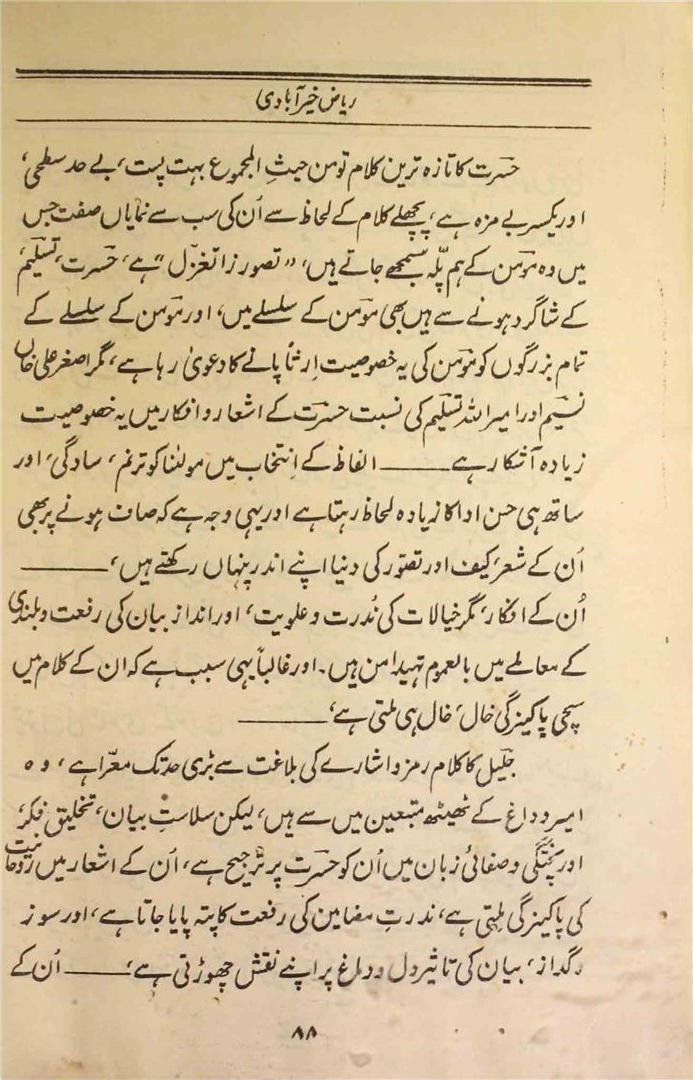 ریاض خیرآبادی
حسرت کا تازہ ترین کلام تو من حیث المجموع بہت پست، بے حد سطحی،
اور یکسر بے مزہ ہے، پچھلے کلام کے لحاظ سے اُن کی سب سے نمایاں صفت جس
میں وہ مومن کے ہم پلّہ سمجھے جاتے ہیں، "تصور زا تغزل" ہے، حسرت، تسلیم،
کے شاگرد ہونے سے ہیں بھی مومن کے سلسلے میں، اور مومن کے سلسلے کے
تمام بزرگوں کو مومن کی یہ خصوصیت اِرثاً پانے کا دعویٰ رہا ہے، مگر اصغر علی خاں
نسیم اور امیر اللہ تسلیم کی نسبت حسرت کے اشعار و افکار میں یہ خصوصیت
زیادہ آشکار ہے ــــــــ الفاظ کے اِنتخاب میں مولٰنا کو ترنم، سادگی، اور
ساتھ ہی حسن ادا کا زیادہ لحاظ رہتا ہے اور یہی وجہ ہے کہ صاف ہونے پر بھی
اُن کے شعر، کیف اور تصوّر کی دنیا اپنے اندر پنہاں رکھتے ہیں، ــــــــ
اُن کے افکار، مگر خیالات کی نُدرت و علویت، اور انداز بیان کی رفعت و بلندی
کے معاملے میں بالعموم تہیدامن ہیں۔ اور غالباً یہی سبب ہے کہ ان کے کلام میں
سچی پاکیزگی خال، خال ہی ملتی ہے، ــــــــ
جلیل کا کلام رمز و اشارے کی بلاغت سے بڑی حد تک معرّا ہے، وہ
امیر و داغ کے ٹھیٹھ متبعین میں سے ہیں، لیکن سلاستِ بیان، تخلیق فکر،
اور پختگی و صفائی زبان میں اُن کو حسرت پر ترجیح ہے، اُن کے اشعار میں روحانیت
کی پاکیزگی ملتی ہے، ندرتِ مضامین کی رفعت کا پتہ پایا جاتا ہے، اور سوز
و گداز، بیان کی تاثیر دل و دماغ پر اپنے نقش چھوڑتی ہے، ــــــــ اُن کے
۸۸